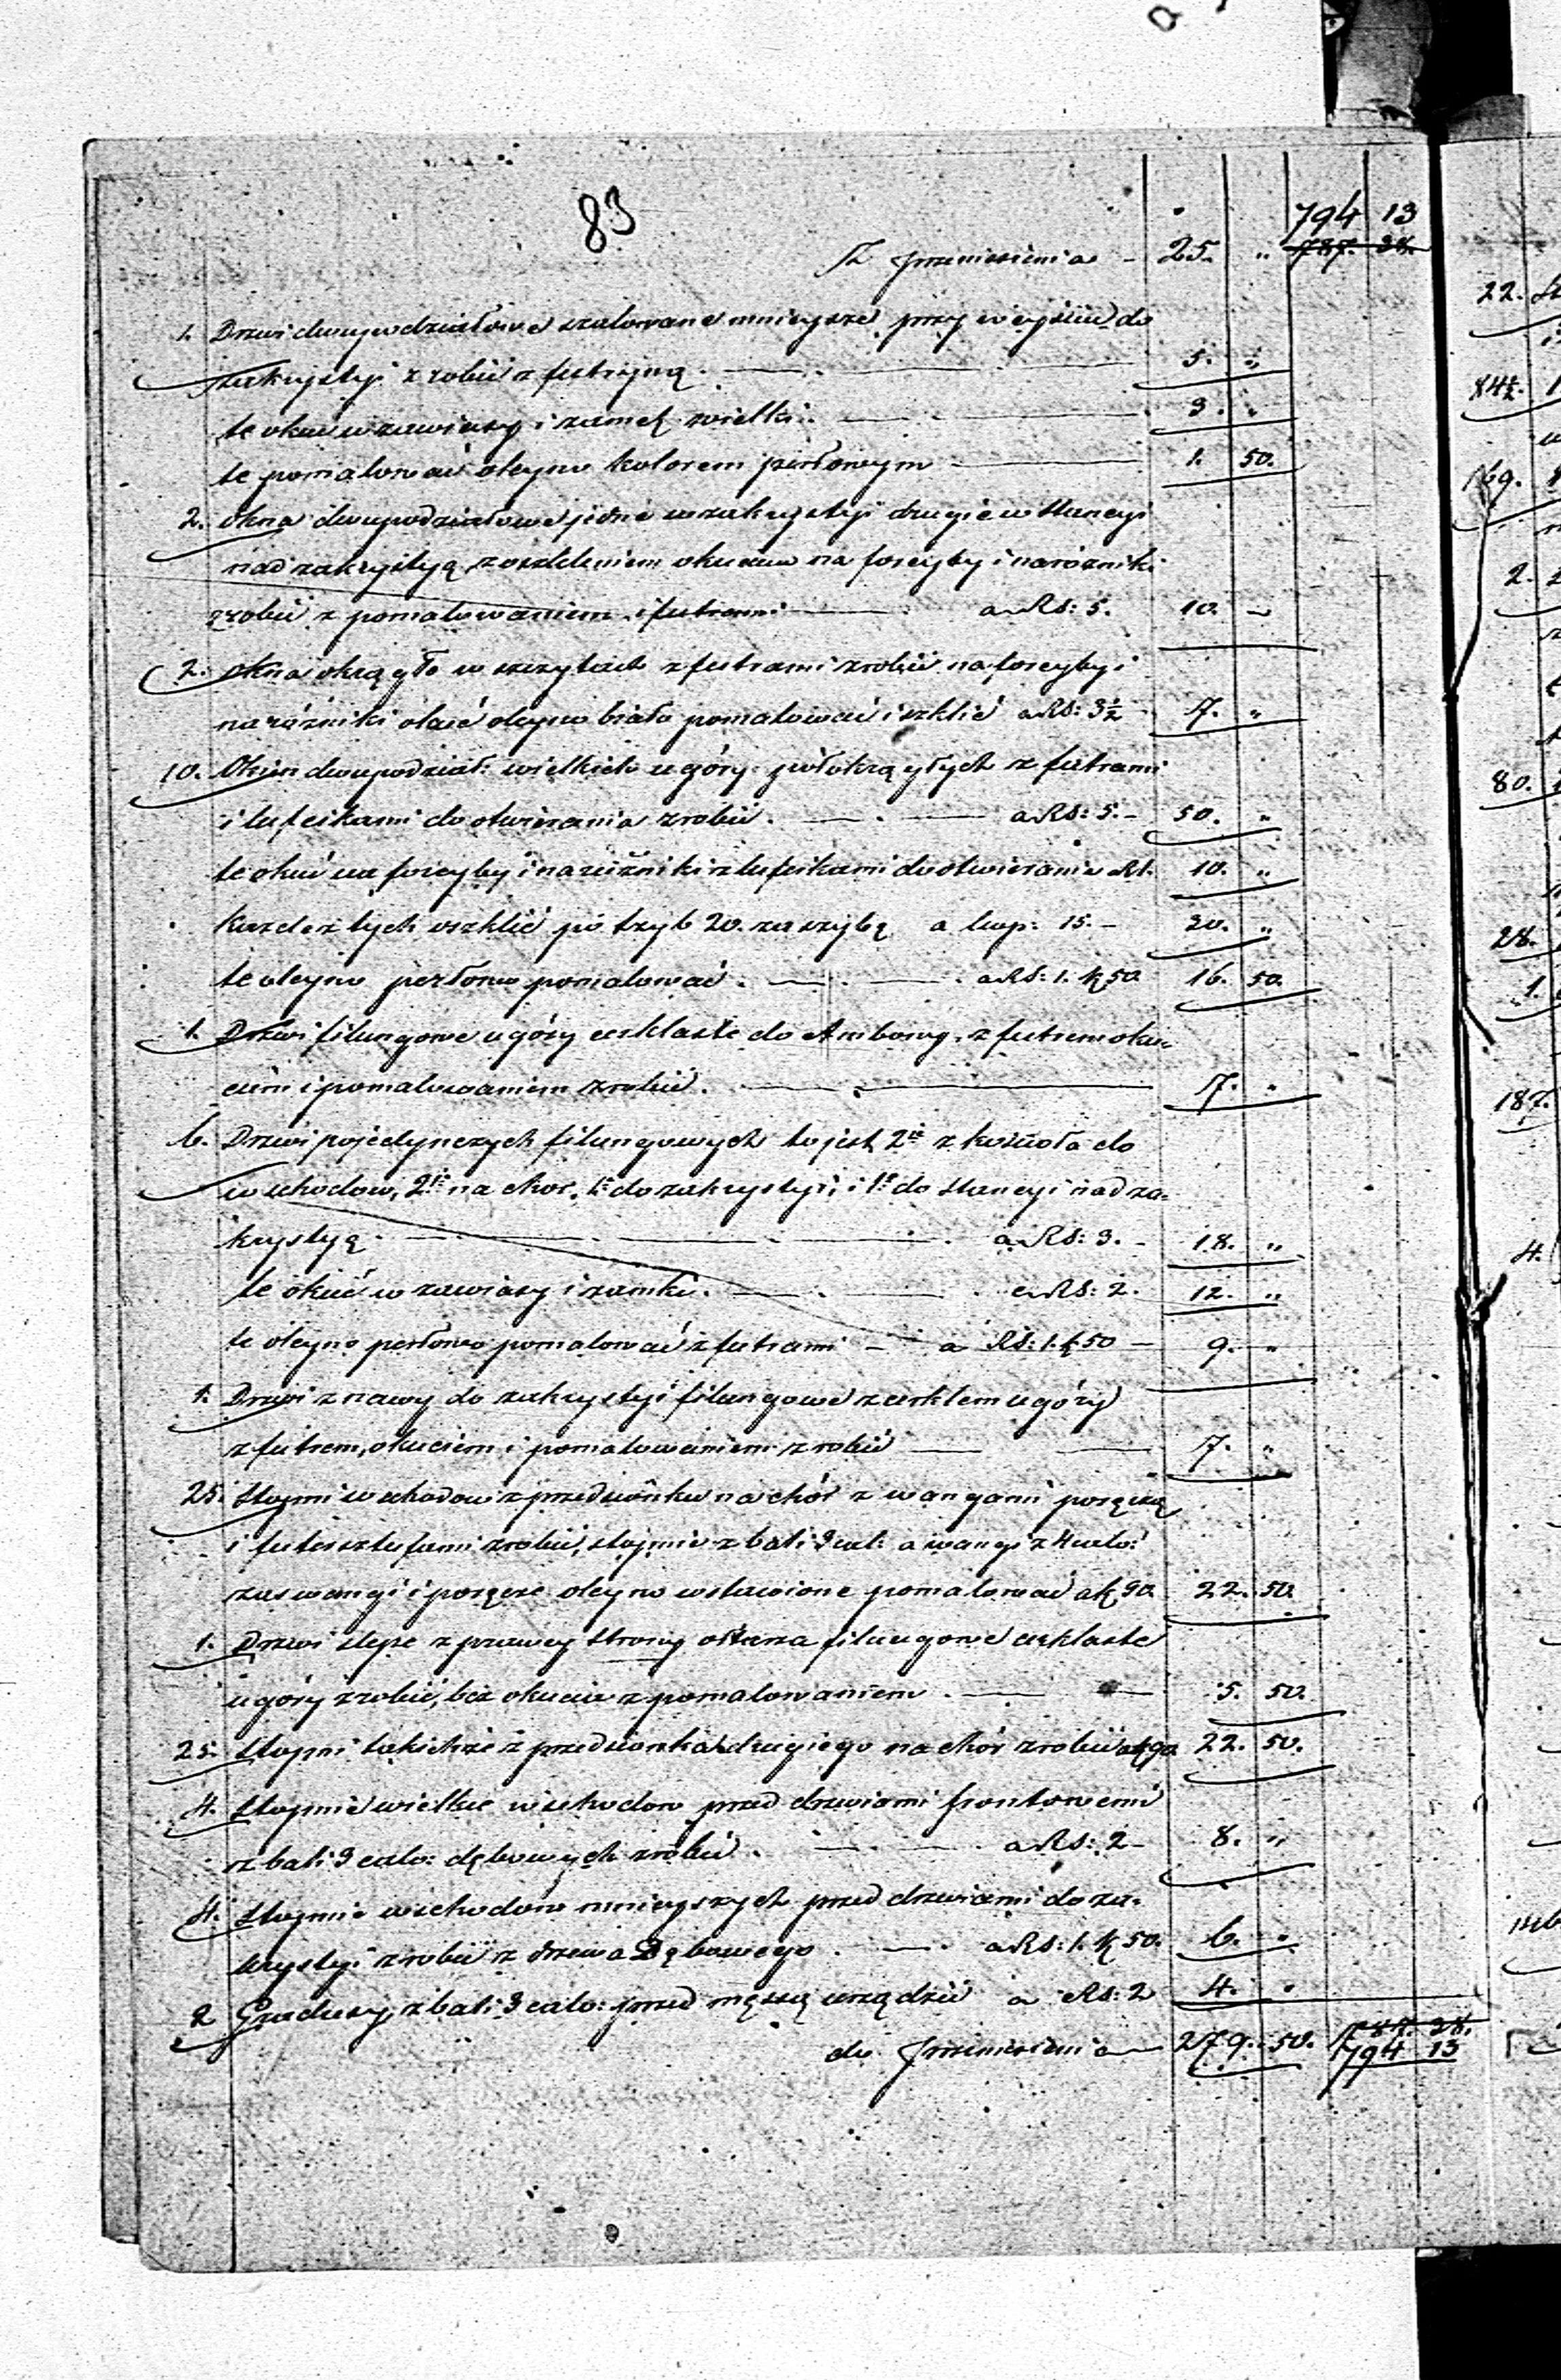 83
794 13
Z przeniesienia - 25. „ 787. 28.
1. Drzwi dwupodziałowe szalowane mnieysze przy weyściu do
zakrystyi zrobić z futryną. 5. „
te okuć w zawiasy i zamek wielki. 3. „
te pomalować oleyno kolorem perłowym 1. 50.
2. okna dwupodziałowe jedne w zakrystyi drugie w stancyi
nad zakrystyą z oszkleniem okuciem na forcyby i narożniki
zrobić z pomalowaniem i futrami a Rs: 5. 10. „
2. okna okrągłe w szczytach z futrami zrobić na forcyby i
narożniki okuć oleyno biało pomalować i szklić a Rs: 3½ 7. „
10. Okien dwupodział: wielkich u góry półokrągłych z futrami
i lufcikami do otwierania zrobić. a Rs: 5. - 50. „
te okuć na forcyby i narożniki z lufcikami do otwierania R1. 10. „
każde z tych oszklić po szyb 20. za szybę a kop: 15. - 30. „
te oleyno perłowo pomalować. a Rs: 1. k 50. 16. 50.
1. Drzwi filungowe u góry cerklaste do Ambony, z futrem oku-
ciem i pomalowaniem zrobić. 7. „
6. Drzwi pojedynczych filungowych to jest 2ie z kościoła do
wschodów, 2ie na chór, 1e do zakrystyi, i 1e do stancyi nad za-
krystyą a Rs: 3. - 18. „
te okuć w zawiasy i zamki. a Rs: 2. 12. „
te oleyno perłowo pomalować z futrami - a Rs: 1. k 50 - 9. „
1. Drzwi z nawy do zakrystyi filungowe z cerklem u góry
z futrem, okuciem i pomalowaniem zrobić 7. „
25. Stopni wschodów z przedsionku na chór z wangami poręczą
i futersztufami zrobić, stopnie z bali 3 cal: a wangi z 4 calo:
zaś wangi i poręcze oleyno wstawione pomalować a k 90. 22. 50.
1. Drzwi slepe z prawey strony ołtarza filungowe cerklaste
u góry zrobić, bez okucia z pomalowaniem. 5. 50.
25. Stopni takichże z przedsionka drugiego na chór zrobić a k 90 22. 50.
4. Stopnie wielkie wschodów przed drzwiami frontowemi
z bali 3 calo: dębowych zrobić. a Rs: 2 - 8. „
4. Stopnie wschodów mnieyszych przed drzwiami do za-
krystyi zrobić z drzewa Dębowego. a Rs: 1. k 50. 6. „
2 Gradusy z bali 3 calo: przed urządzić a Rs: 2 4. „
do przeniesienia 279. 50. 787. 28.
794 13